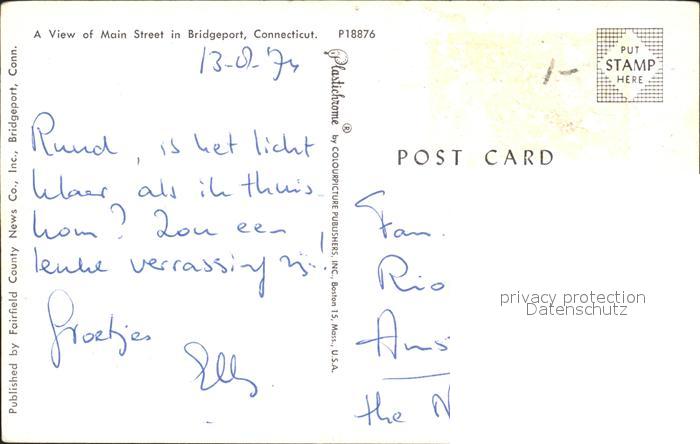 A View of Main Street in Bridgeport, Connecticut. P18876
13-8-74
Ruud, is het licht
klaar als ik thuis-
kom? Zou een
leuke verrassing zijn!
Groetjes
Elly.
Published by Fairfield County News Co., Inc., Bridgeport, Conn.
Plastichrome ® by COLOURPICTURE PUBLISHERS, INC., Boston 15, Mass., U.S.A.
1-
PUT
STAMP
HERE
POST CARD
Fam.
Rio
Ams
the N
privacy protection
Datenschutz